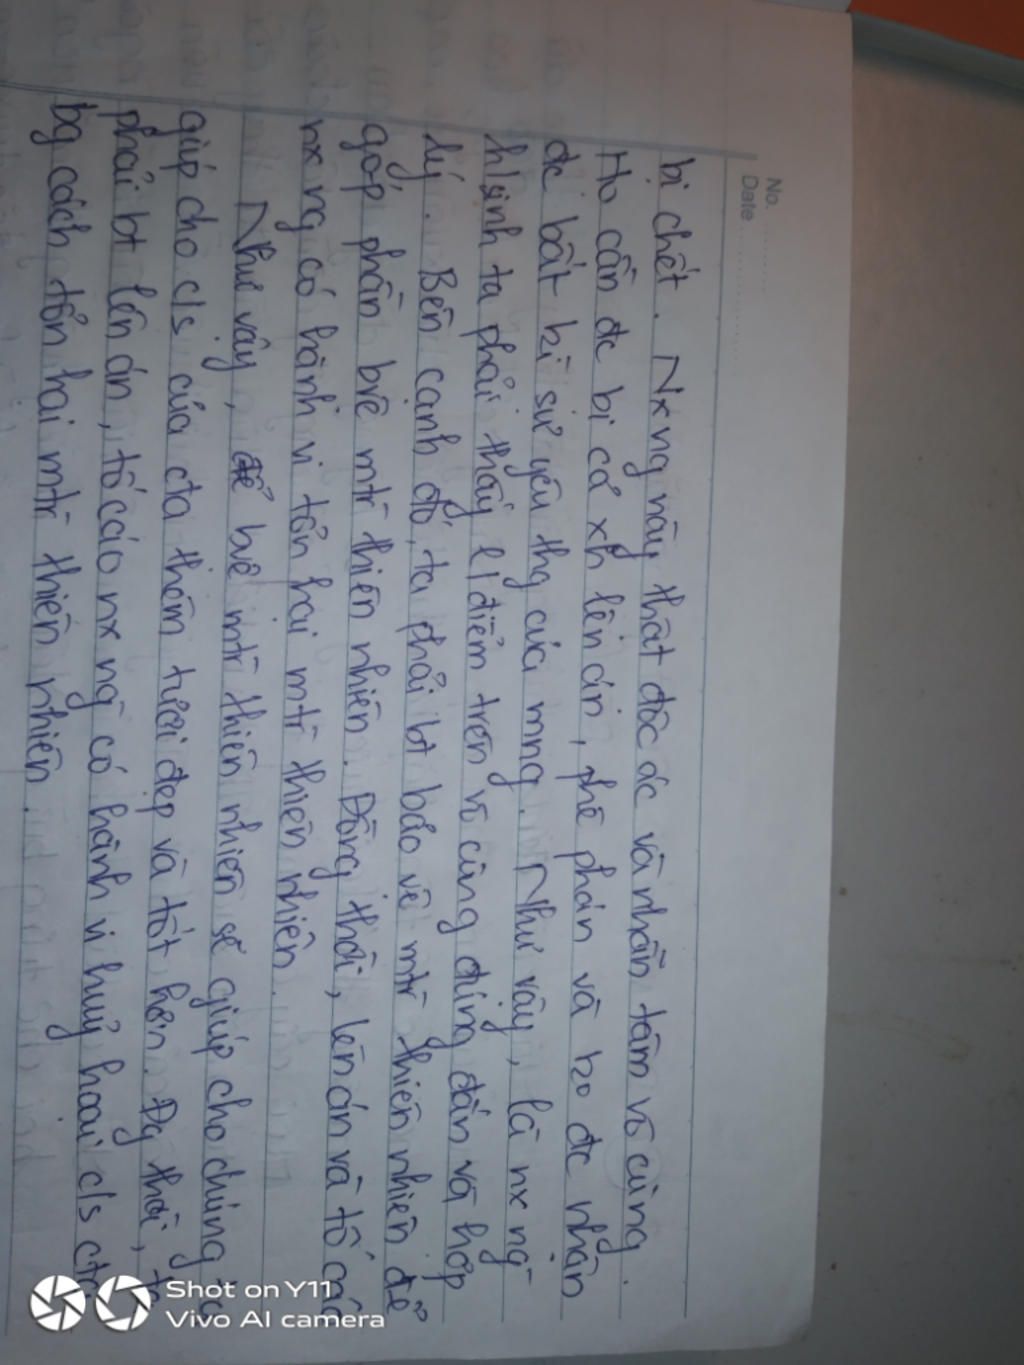 No. ...........
Date ...................
bị chết. Nx ng này thật độc ác và nhẫn tâm vô cùng.
Họ cần đc bị cả xh lên án, phê phán và ko đc nhận
đc bất kì sự yêu thg của mng. Như vậy, là nx ng
hsinh ta phải thấy đ điểm trên vô cùng đúng đắn và hợp
lý. Bên cạnh đó, ta phải bt bảo vệ mtr thiên nhiên để
góp phần bvệ mtr thiên nhiên. Đồng thời, lên án và tố cáo
nx ng có hành vi tổn hại mtr thiên nhiên.
Như vậy, để bvệ mtr thiên nhiên sẽ giúp cho chúng ta
giúp cho c/s của cta thêm tươi đẹp và tốt hơn. Đg thời, ta
phải bt lên án, tố cáo nx ng có hành vi huỷ hoại c/s cta
bg cách tổn hại mtr thiên nhiên.
Shot on Y11
Vivo AI camera